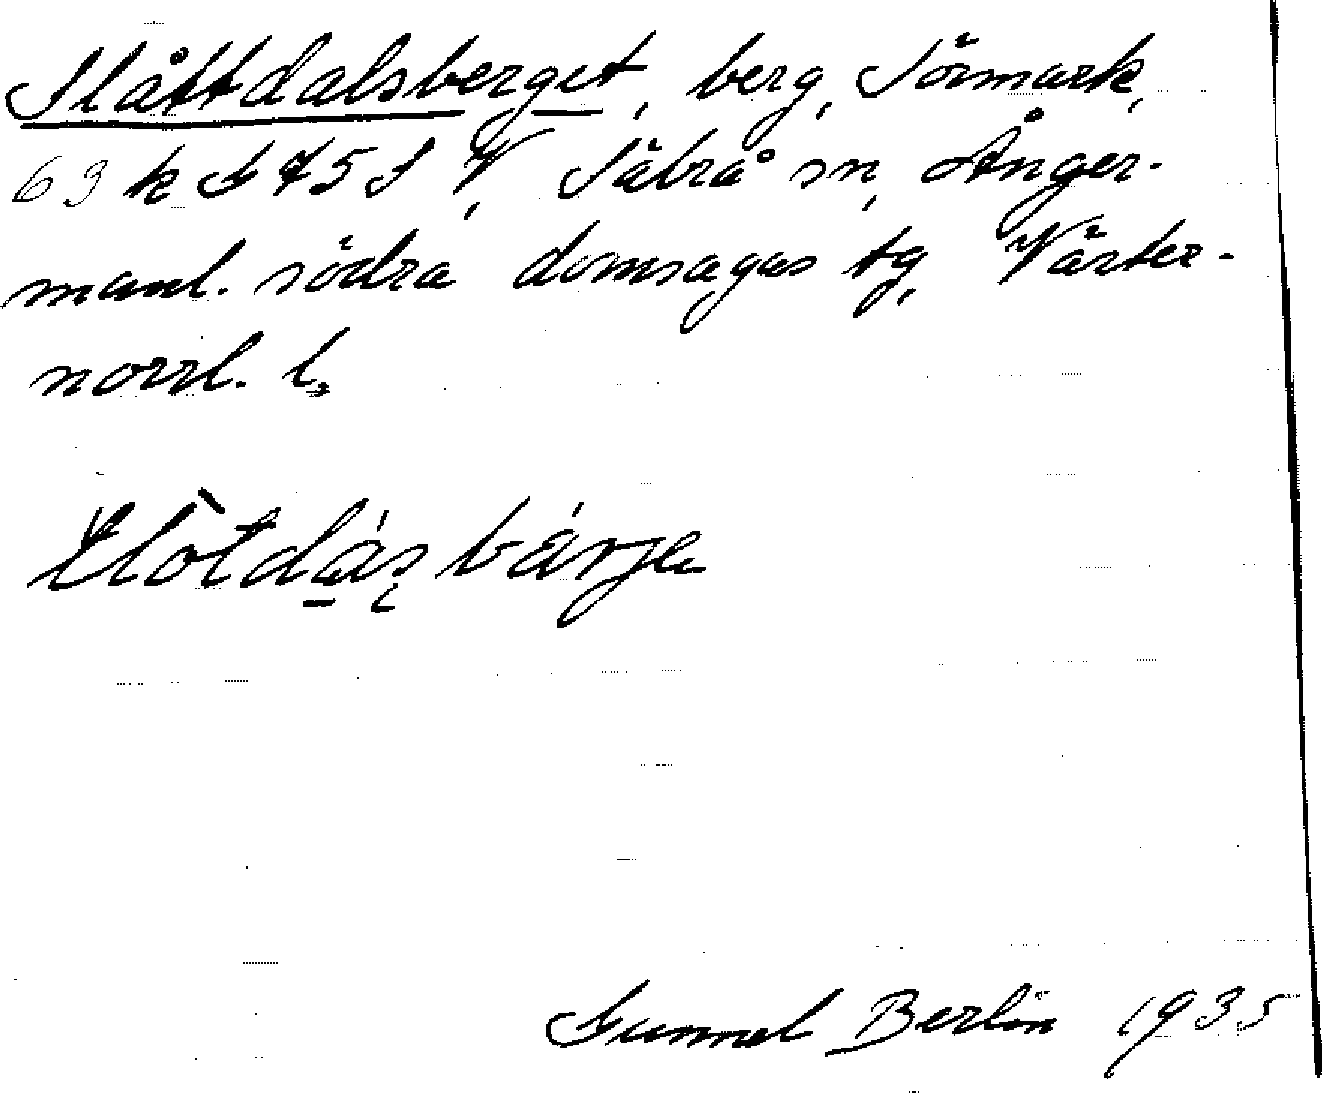 Slåttdalsberget, berg, Sörmark,
63 k G 75 S V, Säbrå sn, Ånger-
manl. södra domsagas tg, Väster-
norrl. l.
Gunnel Berlin 1935